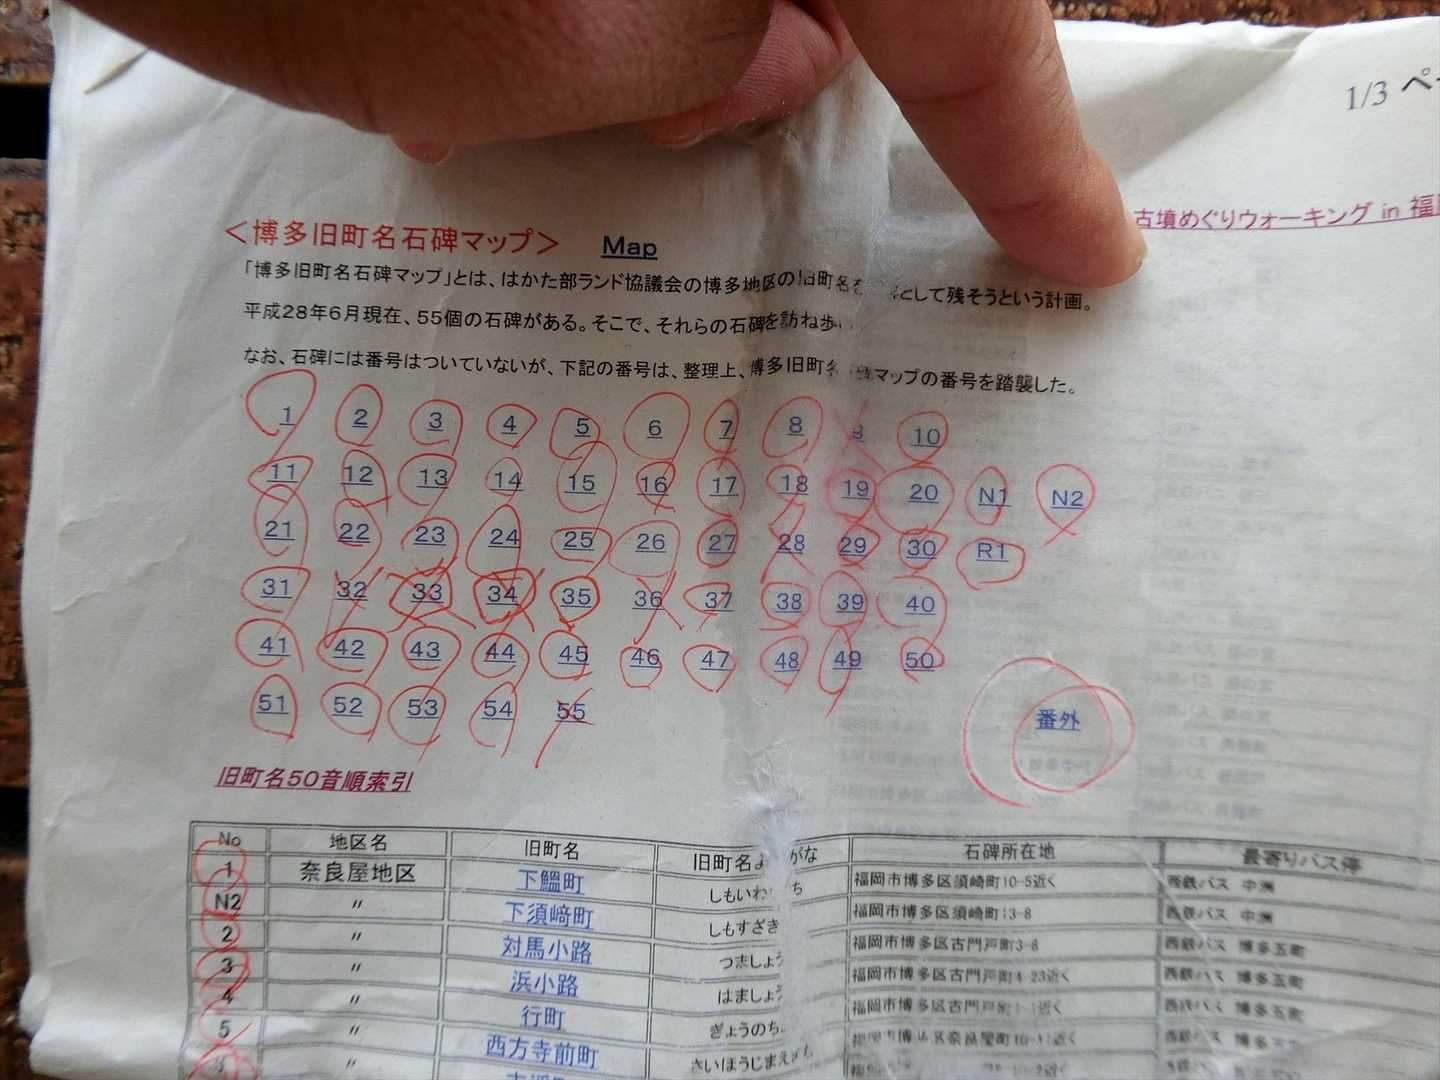 1/3 ペ
古墳めぐりウォーキング in 福
＜博多旧町名石碑マップ＞ Map
「博多旧町名石碑マップ」とは、はかた部ランド協議会の博多地区の旧町名を として残そうという計画。
平成28年6月現在、55個の石碑がある。そこで、それらの石碑を訪ね歩
なお、石碑には番号はついていないが、下記の番号は、整理上、博多旧町名 マップの番号を踏襲した。
1 2 3 4 5 6 7 8 9 10
11 12 13 14 15 16 17 18 19 20 N1 N2
21 22 23 24 25 26 27 28 29 30 R1
31 32 33 34 35 36 37 38 39 40
41 42 43 44 45 46 47 48 49 50
51 52 53 54 55 番外
旧町名50音順索引
No 地区名 旧町名 旧町名 がな 石碑所在地 最寄りバス停
1 奈良屋地区 下鰮町 しもいわ ち 福岡市博多区須崎町10-5近く 西鉄バス 中洲
N2 〃 下須﨑町 しもすざき 福岡市博多区須崎町13-8 西鉄バス 中洲
2 〃 対馬小路 つましょう 福岡市博多区古門戸町3-8 西鉄バス 博多五町
3 〃 浜小路 はましょう 福岡市博多区古門戸町4-23近く 西鉄バス 博多五町
4 〃 行町 ぎょうのち 福岡市博多区古門戸町 近く 西鉄バス 博多五町
5 〃 西方寺前町 さいほうじまえ 福岡市博多区奈良屋町 近く 西鉄バス 博多五